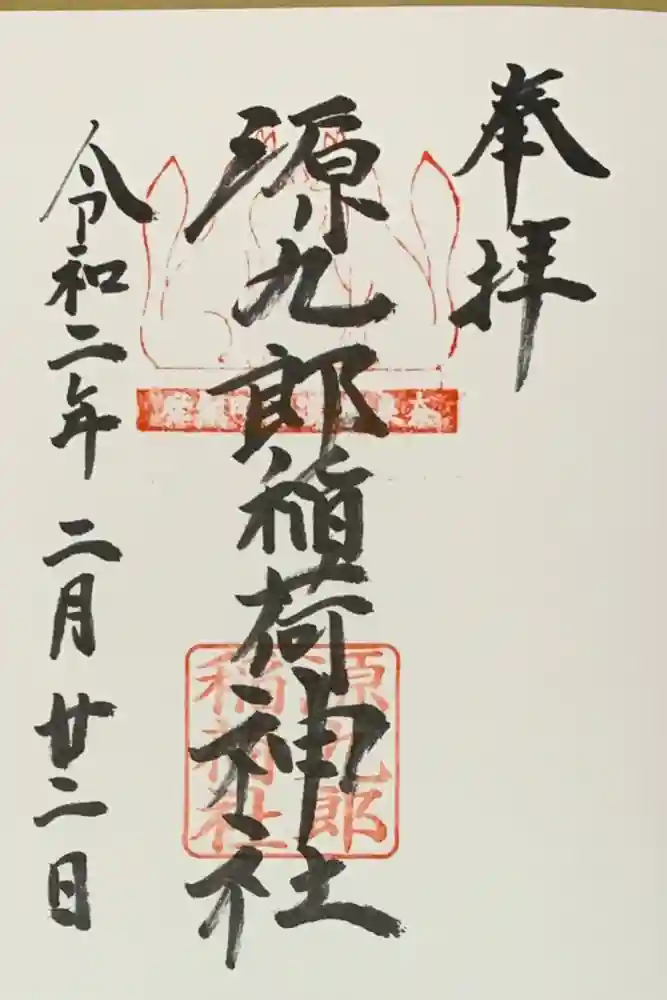 奉拝
源九郎稲荷神社
令和二年二月廿二日
源九郎
稲荷社